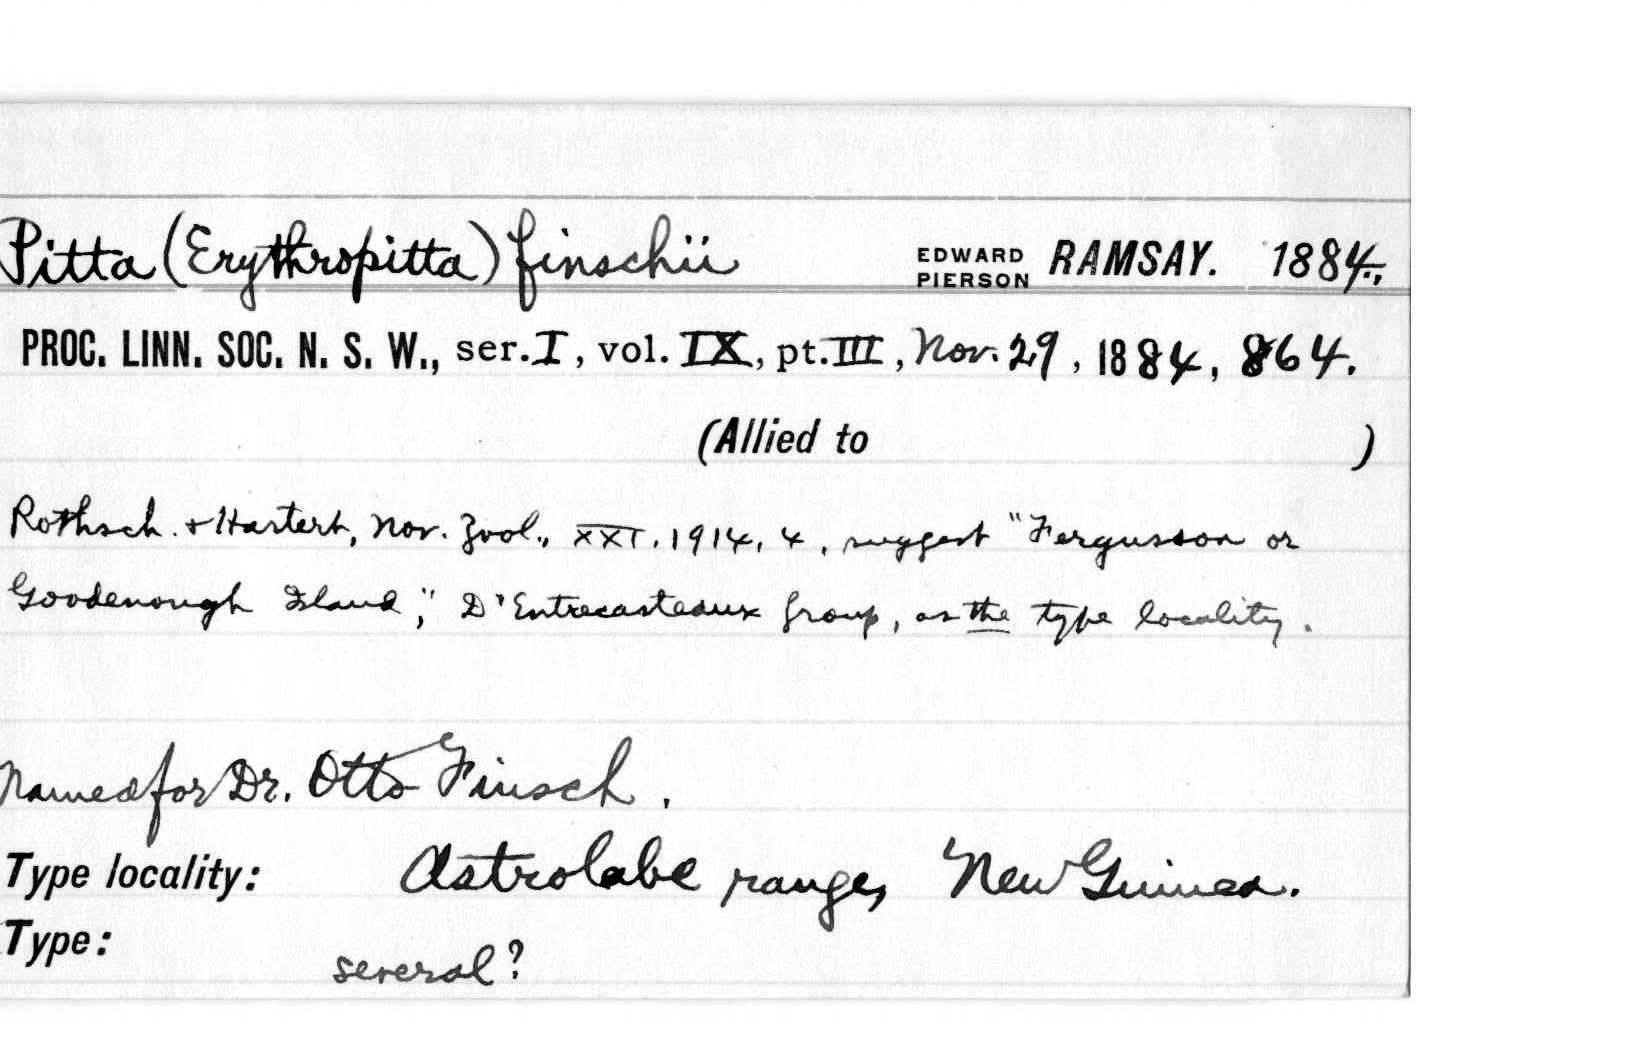 Pitta (Erythropitta) finschii EDWARD PIERSON RAMSAY. 1884.,
PROC. LINN. SOC. N. S. W., ser. I, vol. IX, pt. III, Nov. 29, 1884, 864.
(Allied to )
Rothsch. & Hartert, Nov. Zool., XXI. 1914, 4, suggest "Fergusson or
Goodenough Island," D'Entrecasteaux group, as the type locality.
Named for Dr. Otto Finsch.
Type locality: Astrolabe range, New Guinea.
Type: several?